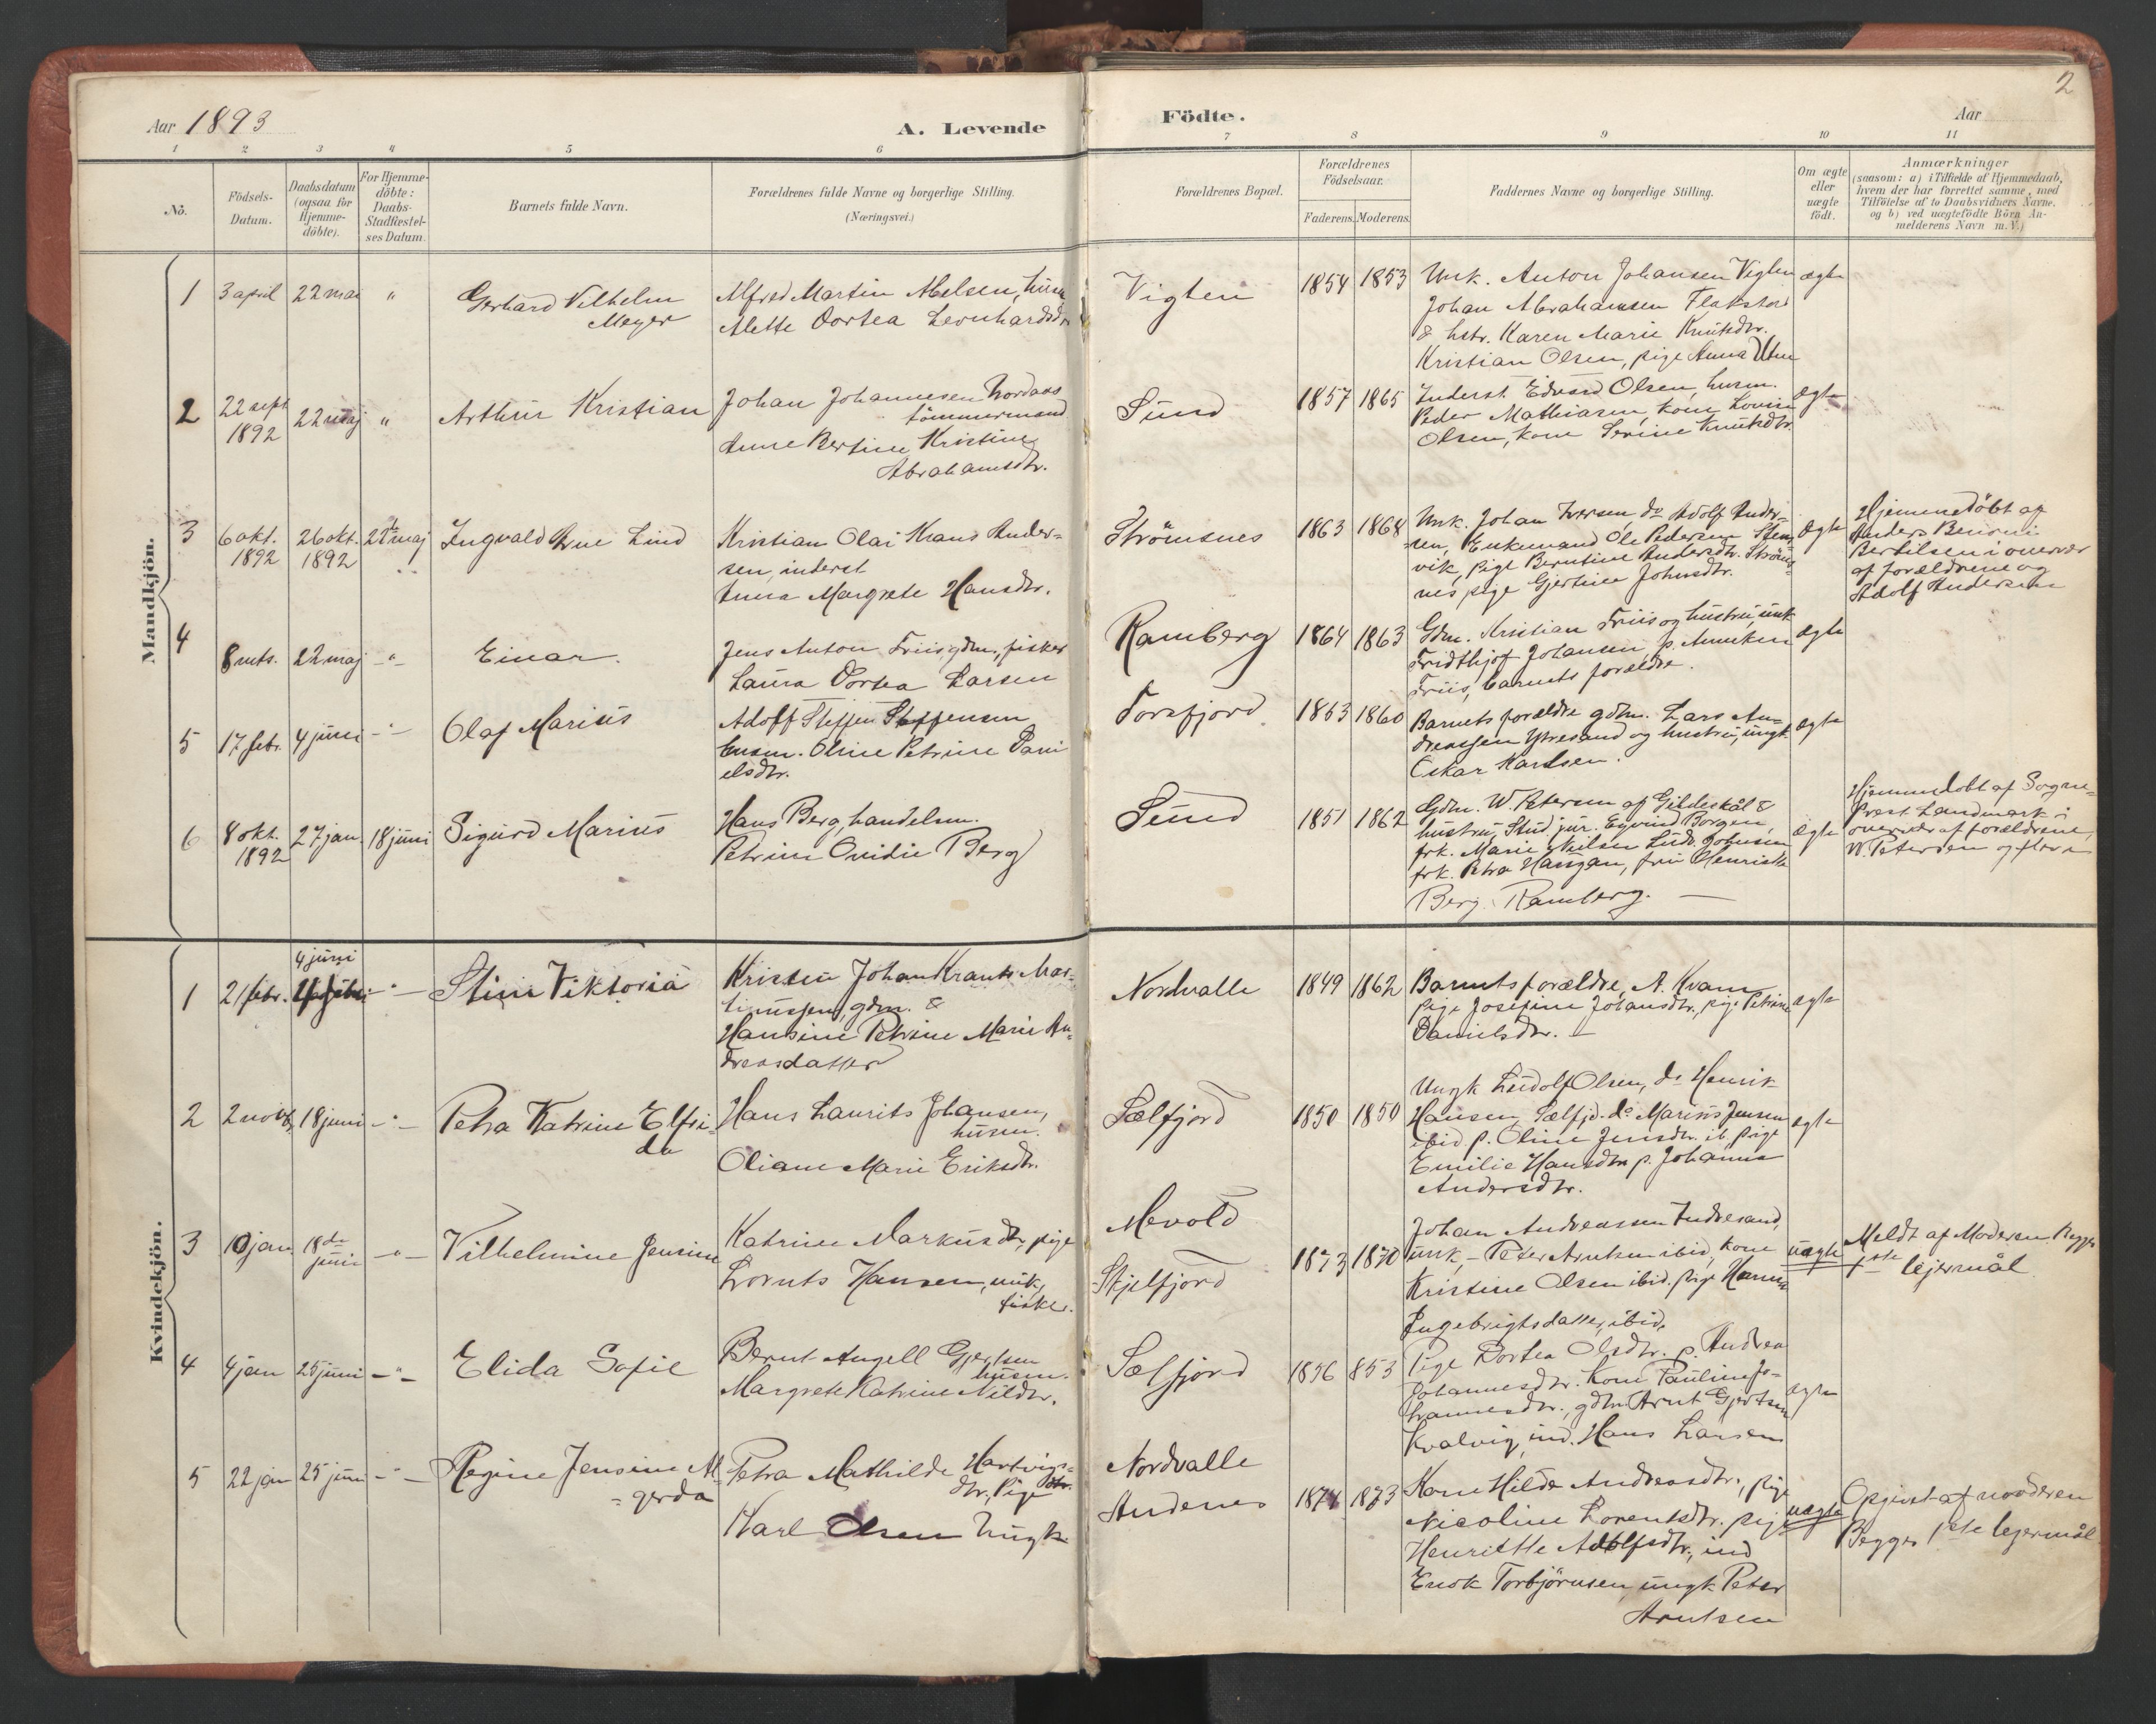 2
Aar 1893
A. Levende
Födte.
Aar
1 2 3 4 5 6 7 8 9 10 11
No.
Födsels-
Datum.
Daabsdatum
(ogsaa for
Hjemme-
döbte).
For Hjemme-
döbte:
Daabs-
Stadfæstel-
ses Datum.
Barnets fulde Navn.
Forældrenes fulde Navne og borgerlige Stilling.
(Næringsvei.)
Forældrenes Bopæl.
Forældrenes
Födselsaar.
Faderens. Moderens.
Faddernes Navne og borgerlige Stilling.
Om ægte
eller
uægte
födt.
Anmærkninger
(saasom: a) i Tilfælde af Hjemmedaab,
hvem der har forrettet samme, med
Tilföielse af to Daabsvidners Navne,
og b) ved uægtefödte Börn An-
melderens Navn m.V.)
Mandkjön.
1
3 april
22 mai
"
Gerhard Vilhelm
Meyer
Alfred Martin Abelsen,
Mette Dortea Leonhardsdr
Vigten
1854
1853
Unk. Anton Johansen Vigten
Johan Abrahamsen Flakstad
& hstr. Karen Marie Knutsdtr.
Kristian Olsen, pige Anna
ægte
2
22 sept
1892
22 maj
"
Arthur Kristian
Johan Johannesen Nordaas
tömmermand
Anne Bertine Kristine
Abrahamsdtr.
Sund
1857
1865
Inderst Edvard Olsen, husm.
Peder Mathiasen, kone Lovise
Olsen, kone Serine Knutsdtr.
ægte
3
6 okt.
1892
26 okt.
1892
22 maj
Ingvald Lind
Kristian Olai Krans Ander-
sen, inderst
Anna Margrete Hansdtr.
Strömsnes
1863
1868
Unk. Johan Iversen, do Adolf Ander-
sen, Enkemand Ole Pedersen
vik, pige Berntine Andersdtr. Ström-
nes, pige Gjertine Johnsdtr.
ægte
Hjemmedöbt af
Anders
Bertilsen i overvær
af forældrene og
Adolf Andersen
4
8 mts.
22 maj
-"-
Einar.
Jens Anton Friis gdm., fisker
Laura Dortea Larsen
Ramberg
1864
1863
Gdm. Kristian Friis og hustru, unk
Fridthjof Johansen, p. Anneken
Friis, barnets forældre.
ægte
5
17 febr.
4 juni
-"-
Olaf Marius
Adolf Steffen Steffensen
husm. Oline Petrine Dani
elsdtr.
Torsfjord
1853
1860
Barnets forældre gdm. Lars An-
dreassen Ytresand og hustru, ungk
Oskar Karlsen.
ægte
6
8 okt.
1892
27 jan.
18 juni
Sigurd Marius
Hans Berg, handelsm.
Petrine Ovidie Berg
Sund
1851
1862
Gdm. W. Petersen af Gildeskål &
hustru, Stud. jur. Eyvind Borgen,
frk. Marie Nielsen Ludv. Johnsen
frk. Petra Hansen, fru Henrikke
Berg Ramberg. —
ægte
Hjemmedöbt af Sogne-
prest Landmark i
overvær af forældrene,
W. Petersen og flere
Kvindekjön.
1
21 febr.
4 juni
-"-
Stine Viktoria
Kristen Johan Krants Mar-
tinussen, gdm. &
Hansine Petrine Marie An-
dreasdatter
Nordvalle
1849
1862
Barnets forældre, A. Kvam
pige Josefine Johansdtr., pige Petrine
Danielsdtr. —
ægte
2
2 novb.
18 juni
-"-
Petra Katrine Elfri-
da
Hans Laurits Johansen,
husm.
Oliane Marie Eriksdtr.
Sælfjord
1850
1850
Ungk Ludolf Olsen, do Henrik
Hansen, Sælfjd. do Marius Jensen
ibid p. Oline Jensdtr. ib. pige
Emilie Hansdtr p. Johanna
Andersdtr.
ægte
3
10 jan
18de
juni
-"-
Vilhelmine Jensine
Katrine Markusdtr, pige
Lornts Hansen, unk,
fisker.
Mevold
Skjelfjord
1873
1870
Johan Andreassen Indresand,
unk, - Peter Arntsen ibid, kone
Kristine Olsen ibid. pige Hanna
Ingebrigtsdatter, ibid.
uægte
Meldt af Moderen. Begges
1ste lejermål
4
4 jan
25 juni
-"-
Elida Sofie
Bernt Angell Gjertsen
husm.
Margrete Katrine Nilsdtr.
Sælfjord
1856
853
Pige Dortea Olsdtr. p. Andrea
Johannesdtr. Kone Pauline Jo-
hannesdtr., gdm. Arnt Gjertsen
Kvalvig, ind. Hans Larsen
ægte
5
22 jan
25 juni
-"-
Regine Jensine Al-
gerda
Petra Mathilde Hartvigs-
dtr., Pige
Karl Olsen Ungk
Nordvalle
Andenes
1874
1873
Kone Hilda Andreasdtr., pige
Nicoline Lorentsdtr. pige
Henriette Adolfsdtr., ind
Enok Torbjörnsen, ungk Peter
Arntsen
uægte
Opgivet af moderen
Begges 1ste lejermål